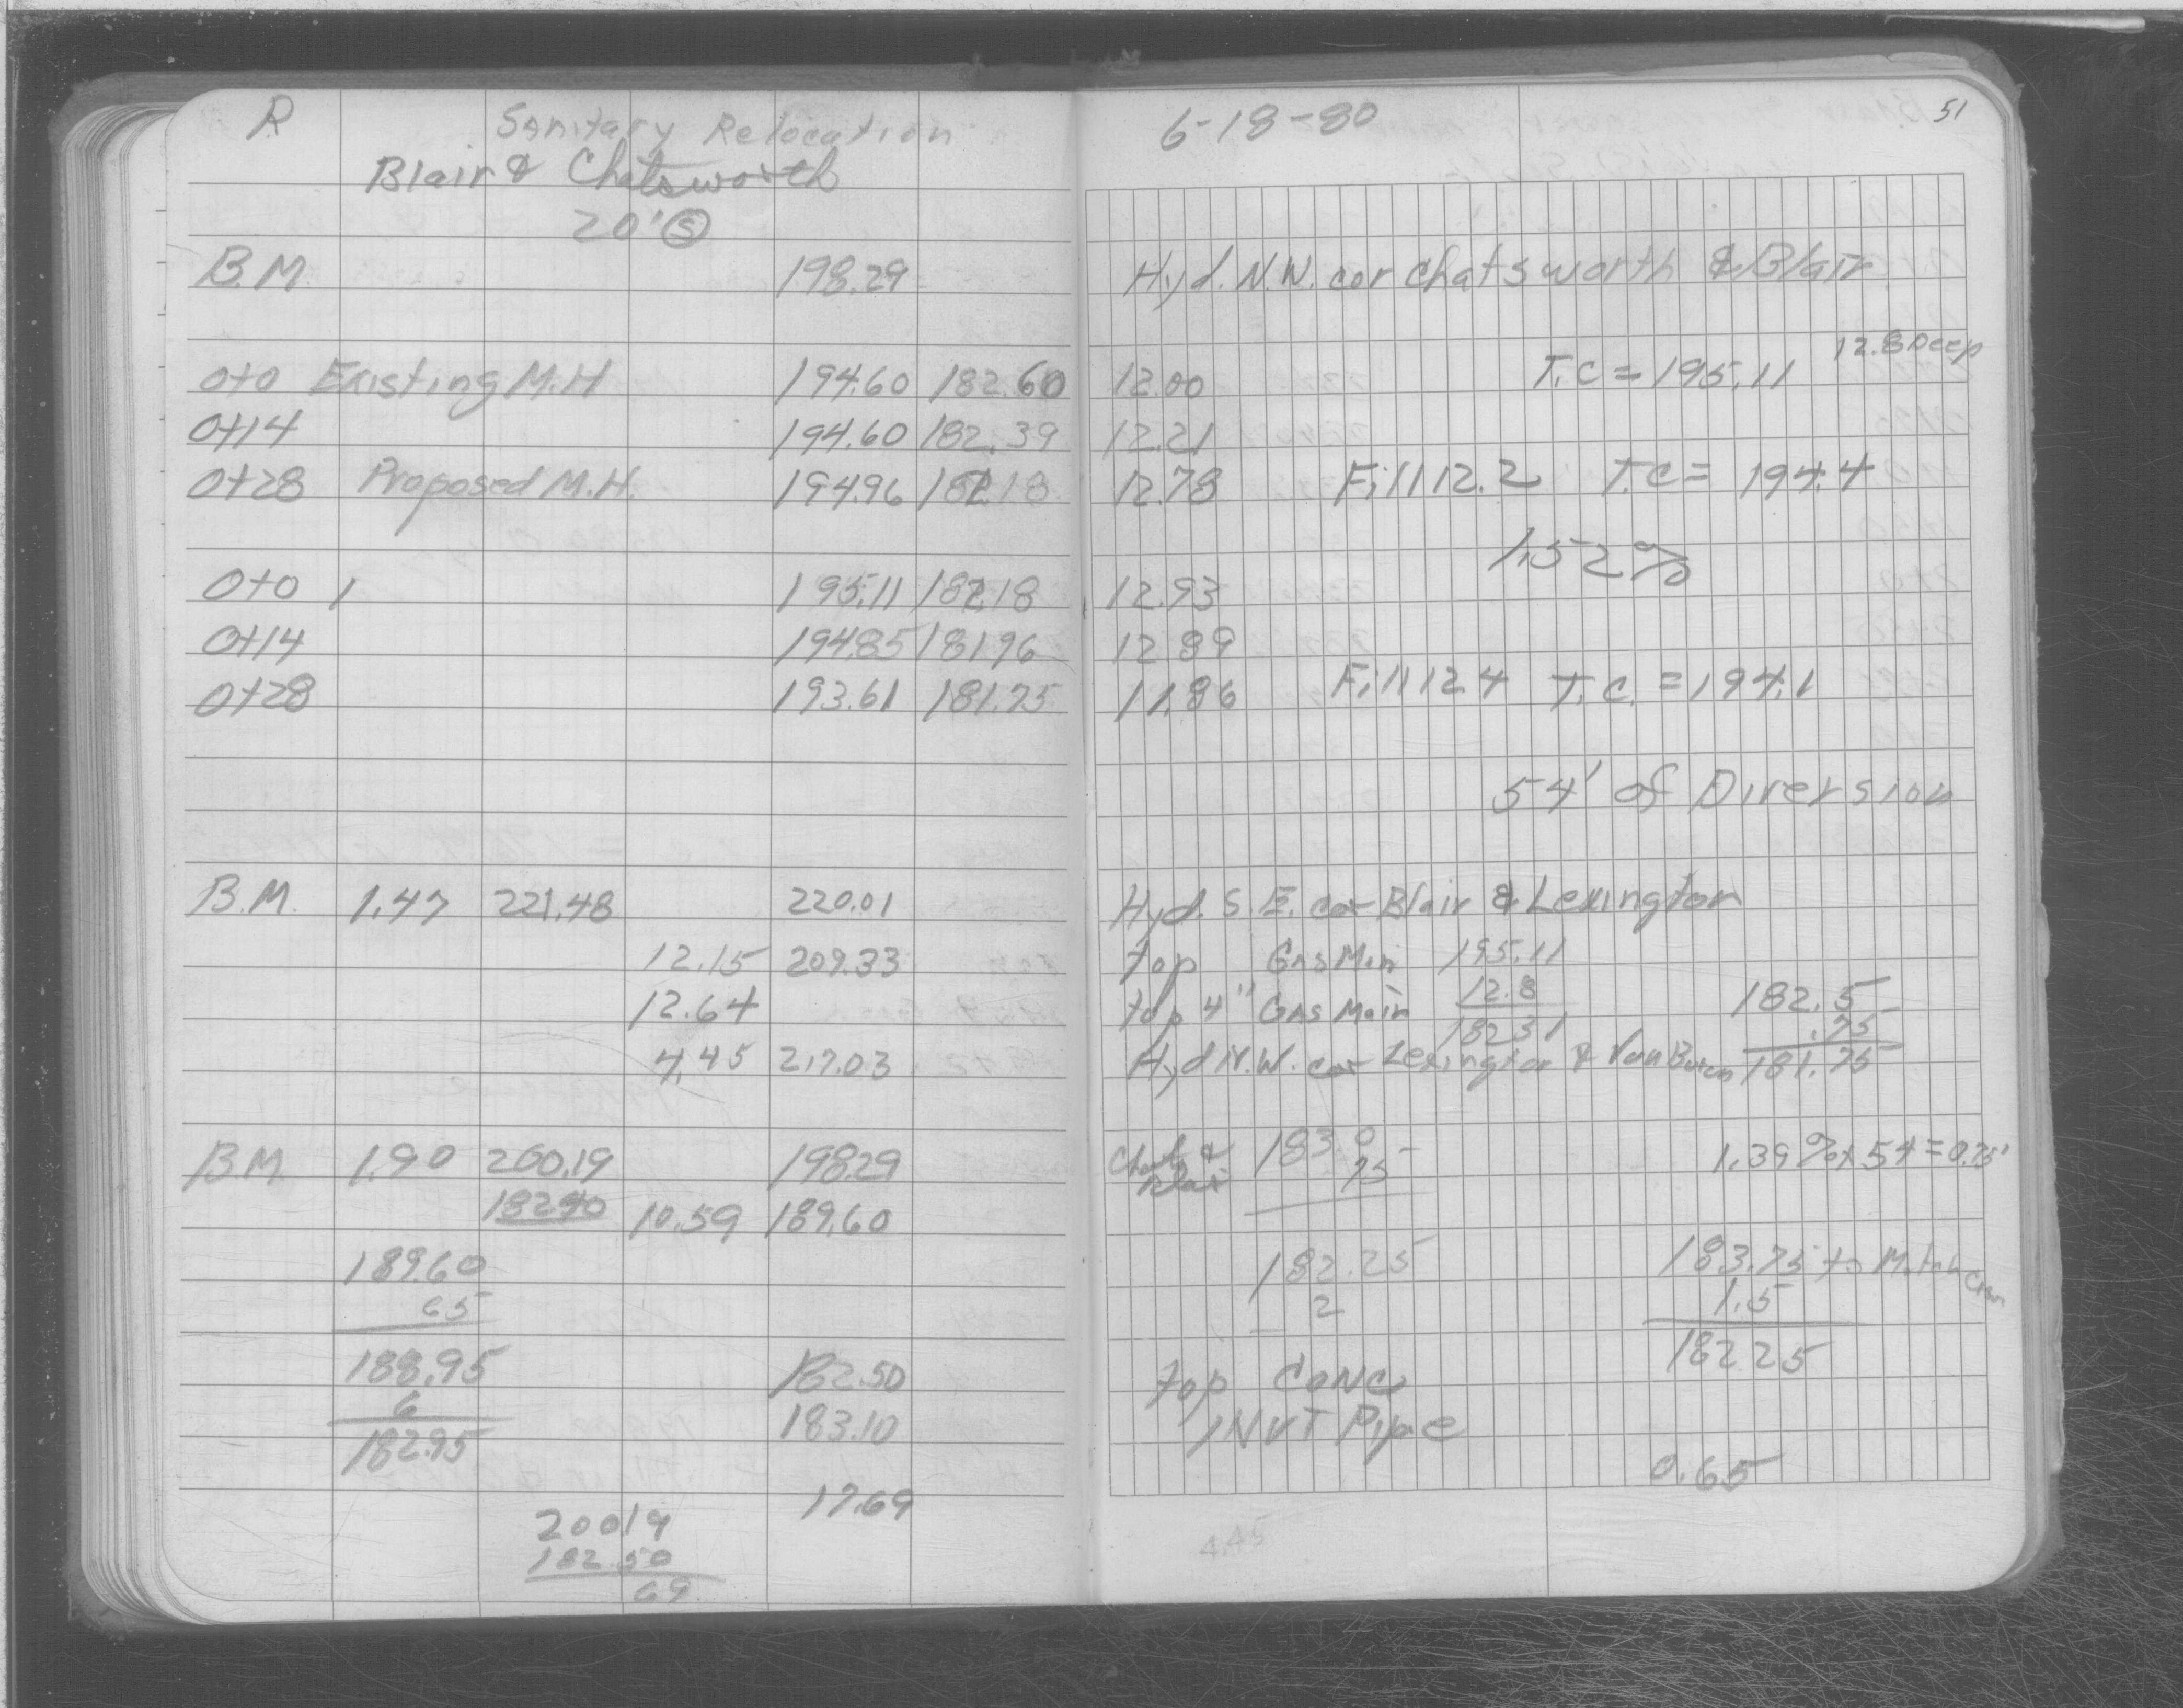 R Sanitary Relocation 6-18-80 51
Blair & Chatsworth
20' S
B.M. 198.29 Hyd. N.W. cor Chatsworth & Blair
0+0 Existing M.H 194.60 182.60 12.00 T.C = 195.11 12.8 Deep
0+14 194.60 182.39 12.21
0+28 Proposed M.H. 194.96 182.18 12.78 Fill 12.2 T.C = 194.4
1.52%
0+0 195.11 182.18 12.93
0+14 194.85 181.96 12.89
0+28 193.61 181.75 11.86 Fill 12.4 T.C. = 194.1
54' of Diversion
B.M. 1.47 221.48 220.01 Hyd. S.E. cor Blair & Lexington
12.15 209.33 top Gas Main 195.11
12.64 top 4" Gas Main 12.8 182.5
182.31 .75
4.45 217.03 Hyd N.W. cor Lexington & Van Buren 181.75
B.M. 1.90 200.19 198.29 Chats & Blair 183.0 1.39% x 54 = 0.75'
.75
182.40 10.59 189.60
189.60 182.25 183.75 to Match Crown
65 2 1.5
188.95 182.50 top Conc 182.25
6 183.10 INVT Pipe
182.95 0.65
17.69
200.19 4.45
182.50
69